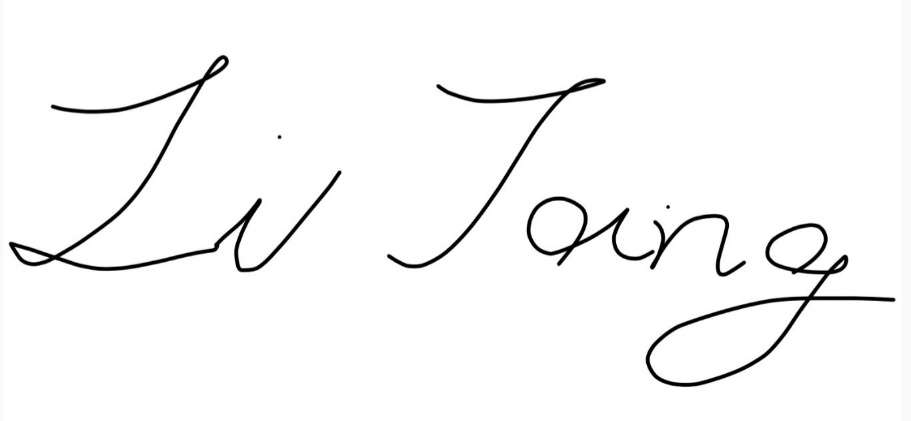 Li Taing